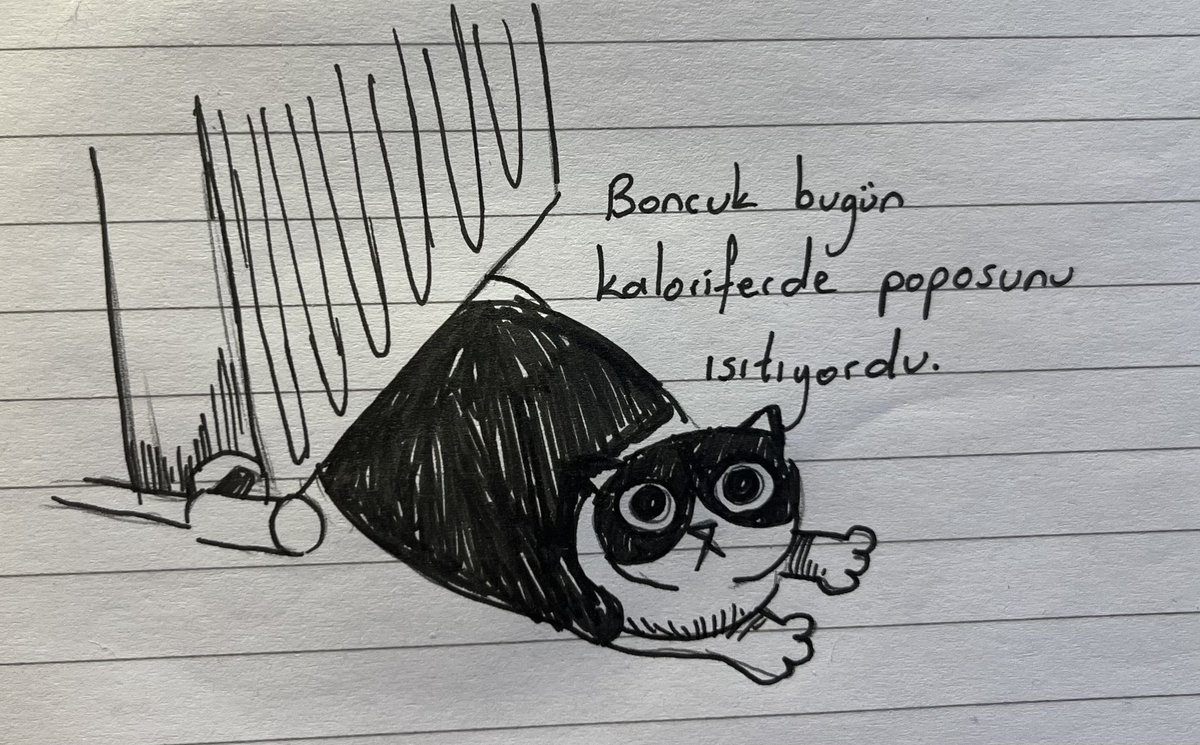 Boncuk bugün
kaloriferde poposunu
ısıtıyordu.